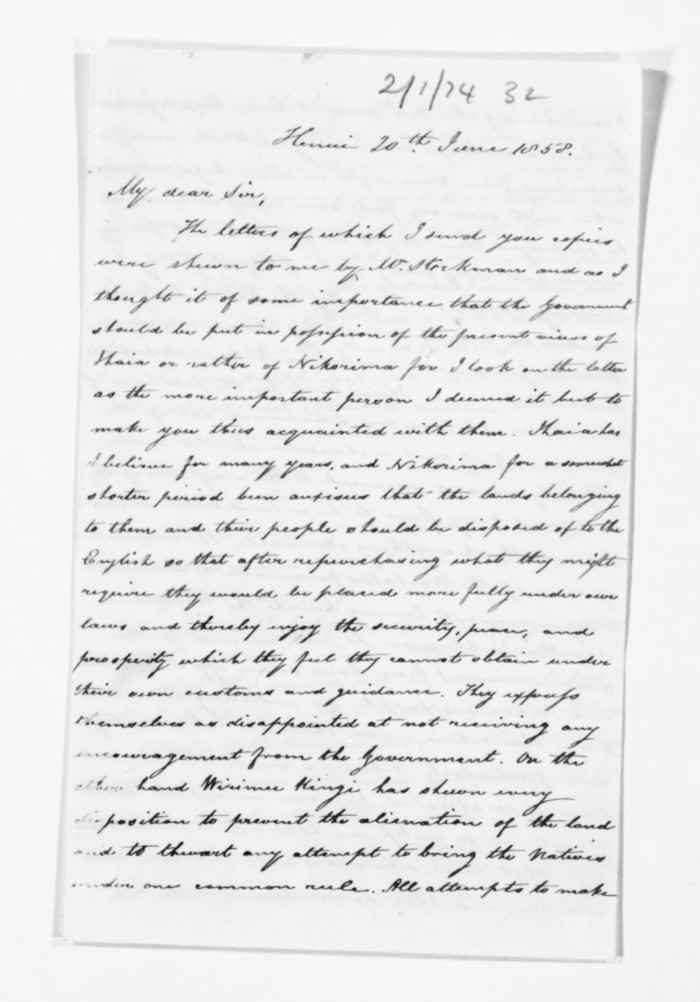 2/1/74 32
Henui 20th June 1858.
My dear Sir,
The letters of which I send you copies
were shewn to me by Mr. Stockman and as I
thought it of some importance that the Government
should be put in possession of the present views of
Ihaia or rather of Nikorima for I look on the latter
as the more important person I deemed it but to
make you thus acquainted with them. Ihaia has
I believe for many years, and Nikorima for a somewhat
shorter period been anxious that the lands belonging
to them and their people should be disposed of to the
English so that after repurchasing what they might
require they would be placed more fully under our
laws and thereby enjoy the security, peace, and
prosperity which they feel they cannot obtain under
their own customs and guidance. They express
themselves as disappointed at not receiving any
encouragement from the Government. On the
other hand Wirimu Kingi has shewn every
disposition to prevent the alienation of the land
and to thwart any attempt to bring the Natives
under one common rule. All attempts to make